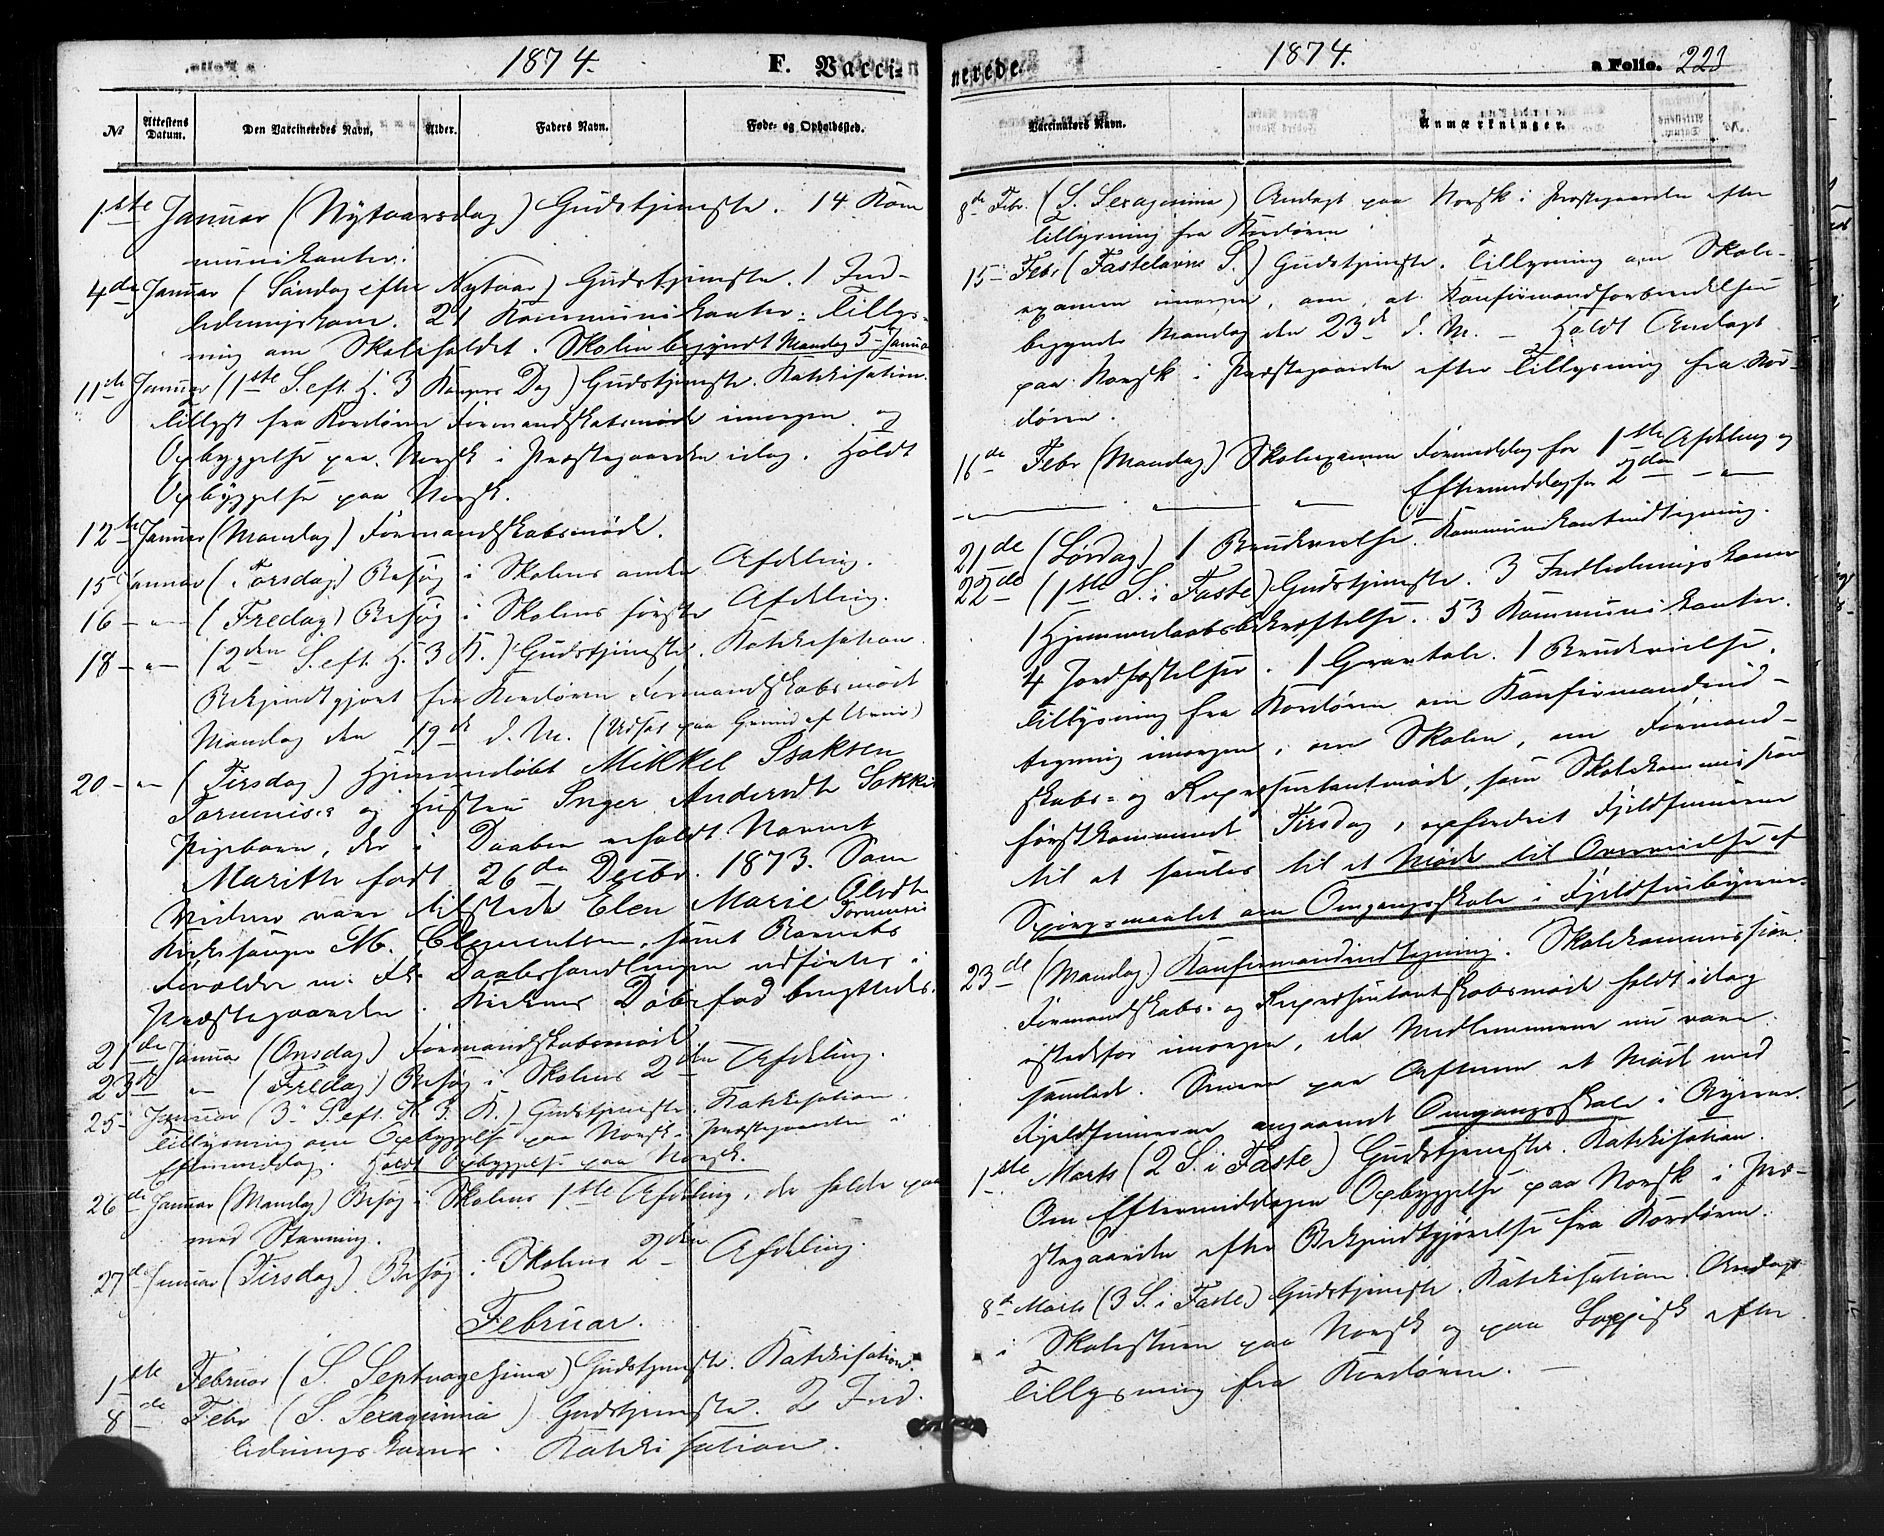 1874.
F. Vacci-
№
Attestens Datum.
Den Vaccineredes Navn.
Alder.
Faders Navn.
Føde- og Opholdssted.
1ste Januar (Nytaarsdag) Gudstjeneste. 14 Kom
munikanter.
4de Januar (Søndag efter Nytaar) Gudstjeneste. 1 Ind-
ledningskone. 21 Kommunikanter. Tillys-
ning om Skoleholdet. Skolen begyndt Mandag 5 Januar
11te Januar (1ste S. eft. H. 3 Kongers Dag) Gudstjeneste. Katekisation.
Tillyst fra Kordøren Formandskabsmøde imorgen og
Opbyggelse paa Norsk i Præstegaarden idag. Holdt
Opbyggelse paa Norsk.
12te Januar (Mandag) Formandskabsmøde.
15 Januar (Torsdag) Besøg i Skolens anden Afdeling.
16 – " – (Fredag) Besøg i Skolens første Afdeling.
18 – " – (2den S. eft. H. 3 K.) Gudstjeneste. Katekisation.
Bekjendtgjort fra Kordøren Formandskabsmøde
Mandag den 19de d. M. (Udsat paa Grund af Uveir)
20 – " – (Tirsdag) Hjemmedøbt Mikkel Isaksen
Tornensis og Hustru Inger Andersdtr Sokki
Pigebarn, der i Daaben erholdt Navnet
Marith født 26de Decbr. 1873. Som
Vidner vare tilstede Elen Marie Olsdtr
Tornensis
Kirkesanger M. Clementsen, samt Barnets
Forældre m: Fl. Daabshandlingen udførtes i
Præstegaarden. Kirkens Døbefad benyttedes.
21de Januar (Onsdag) Formandskabsmøde
23de " (Fredag) Besøg i Skolens 2den Afdeling.
25 Januar (3 S. eft. H. 3. K.) Gudstjeneste. Katekisation.
Tillysning om Opbyggelse paa Norsk i Præstegaarden i
Eftermiddag. Holdt Opbyggelse paa Norsk.
26de Januar (Mandag) Besøg i Skolens 1ste Afdeling, der holder paa
med Stavning.
27de Januar (Tirsdag) Besøg i Skolens 2den Afdeling.
Februar.
1ste Februar (S. Septuagesima) Gudstjeneste. Katekisation.
8de Febr (S. Sexagesima) Gudstjeneste. 2 Ind
ledningskoner. Katekisation.
nerede.
1874.
a Folio. 223
Vaccinatørs Navn.
Anmærkninger.
8de Febr. (S. Sexagesima) Andagt paa Norsk i Præstegaarden efter
Tillysning fra Kordøren.
15 Febr (Fastelavns S.) Gudstjeneste. Tillysning om Skole-
examen imorgen, om, at Konfirmandforberedelsen
begynder Mandag den 23de d. M. – Holdt Andagt
paa Norsk i Præstegaarden efter Tillysning fra Kor-
døren.
16de Febr (Mandag) Skoleexamen Formiddag for 1ste Afdeling og
" Eftermiddag for 2den – " –
21de (Lørdag) 1 Brudevielse. Kommunikantindtegning.
22de (1ste S. i Faste) Gudstjeneste. 3 Indledningskoner
1 Hjemmedaabsbekræftelse. 53 Kommunikanter.
4 Jordfæstelser. 1 Gravtale. 1 Brudevielse.
Tillysning fra Kordøren om Konfirmandind-
tegning imorgen, om Skolen, om Formand-
skabs- og Repræsentantmøde, som Skolekommission
førstkommende Tirsdag, opfordret Fjeldfinnerne
til at samles til et Møde til Overveielse af
Spørgsmaalet om Omgangsskole i Fjeldfinbyerne.
23de (Mandag) Konfirmandindtegning. Skolekommission
Formandskabs- og Repræsentantskabsmøde holdt idag
istedetfor imorgen, da Medlemmerne nu vare
samlede. Senere paa Aftenen et Møde med
Fjeldfinnerne angaaende Omgangsskole i Byerne.
1ste Marts (2 S. i Faste) Gudstjeneste. Katekisation.
Om Eftermiddagen Opbyggelse paa Norsk i Præ-
stegaarden efter Bekjendtgjørelse fra Kordøren.
8de Marts (3 S. i Faste) Gudstjeneste. Katekisation. Andagt
i Skolestuen paa Norsk og paa Lappisk efter
Tillysning fra Kordøren. –